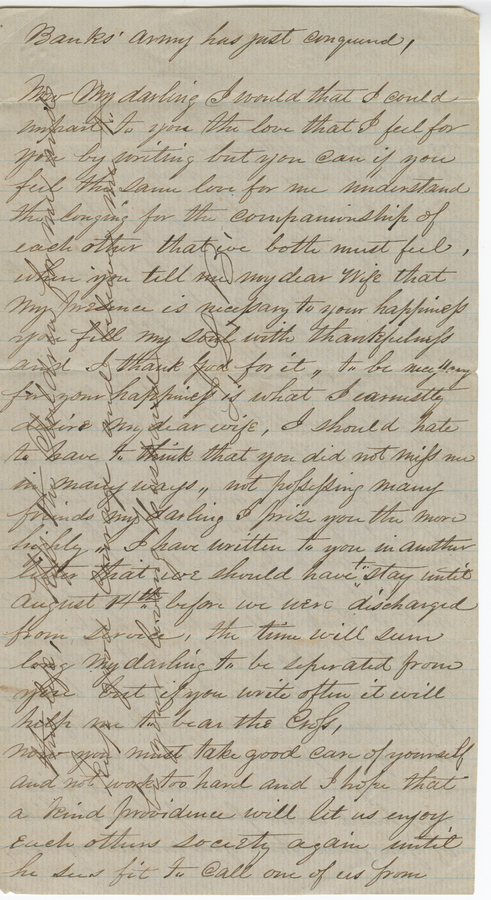 Banks' Army has just conquered,
Now My darling I would that I could
impart to you the love that I feel for
you by writing but you can if you
feel the same love for me understand
the longing for the companionship of
each other that we both must feel,
when you tell me my dear Wife that
my presence is necessary to your happiness
you fill my soul with thankfulness
and I thank God for it,, to be necessary
for your happiness is what I earnestly
desire my dear wife, I should hate
to have to think that you did not miss me
in many ways,, not possessing many
friends my darling I prize you the more
highly,, I have written to you in another
letter that we should have to stay until
August 14th before we were discharged
from service, the time will seem
long my darling to be seperated from
you but if you write often it will
help me to bear the Cross,
now you must take good care of yourself
and not work too hard and I hope that
a kind Providence will let us enjoy
each others society again until
he sees fit to call one of us from